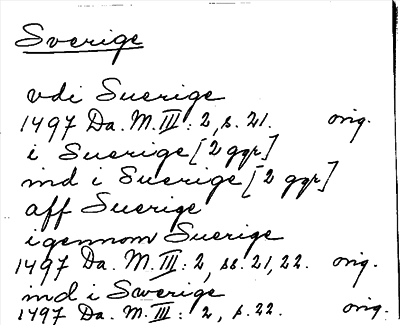 Sverige
vdi Suerige
1497 Da. M. III: 2, s. 21. orig.
i Suerige [2 ggr.]
ind i Suerige [2 ggr.]
aff Suerige
igennom Suerige
1497 Da. M. III: 2, ss. 21, 22. orig.
ind i Swerige
1497 Da. M. III: 2, s. 22. orig.